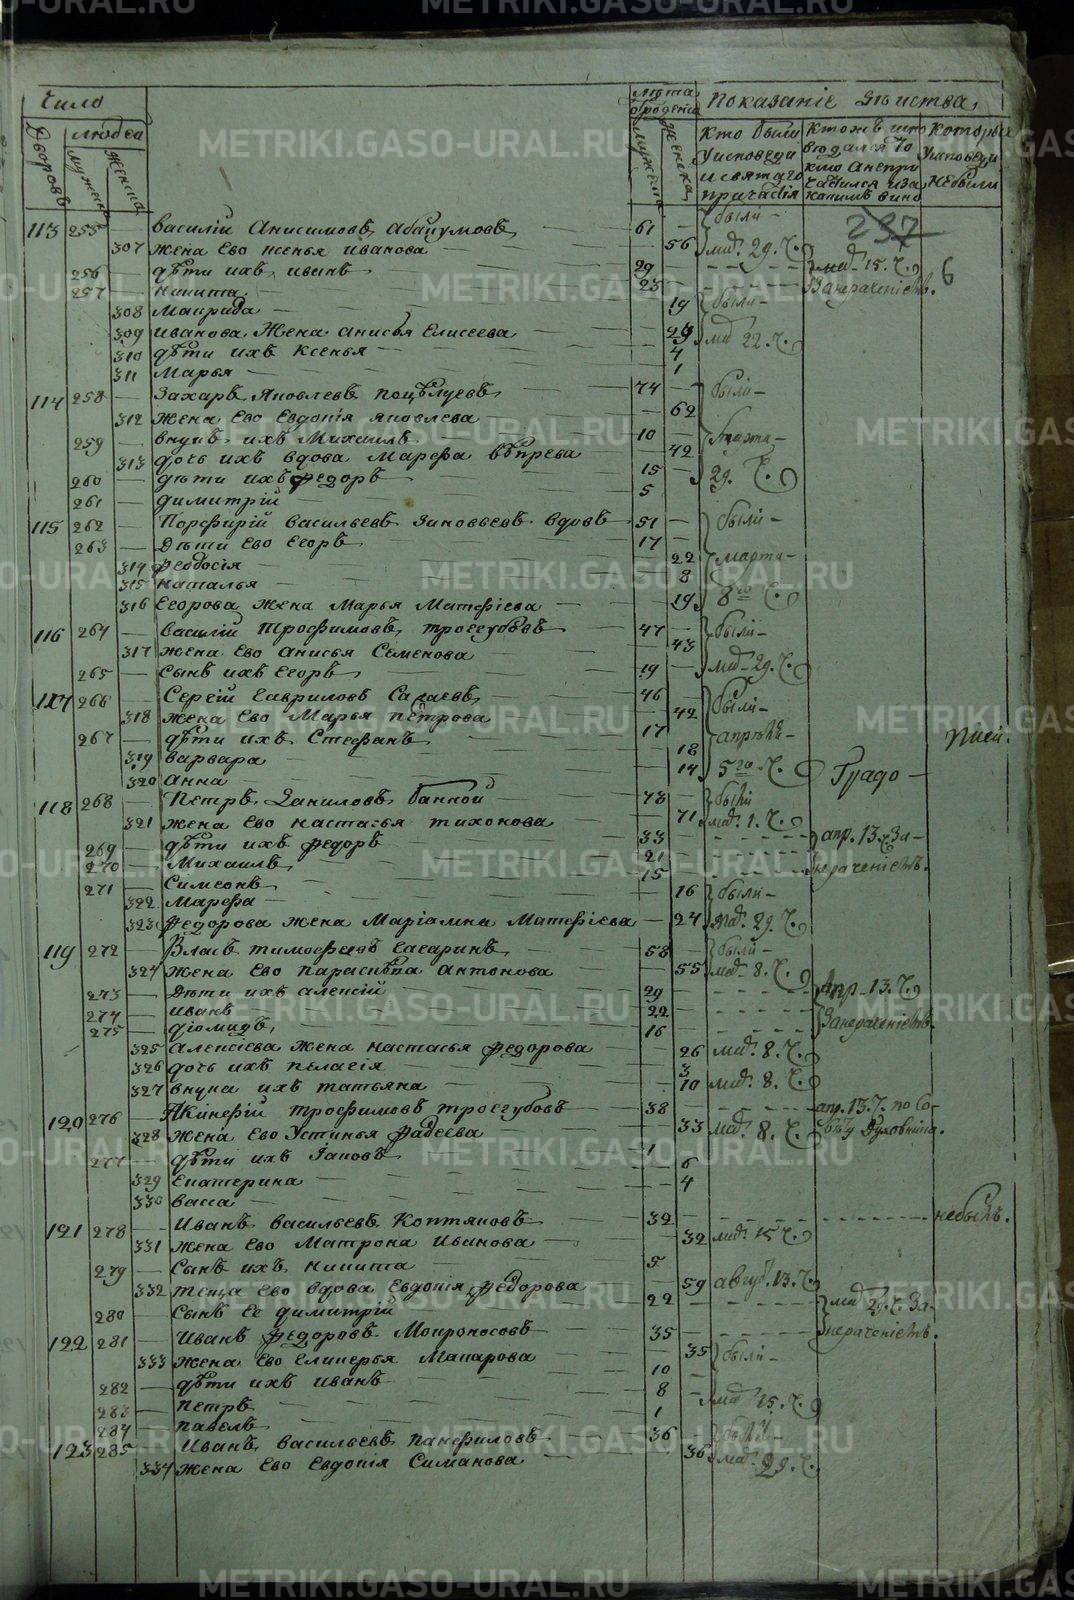 число
лѣта
Показаніе дѣиства,
Дворовъ
людеи
мужеска
женска
Кто были
Уисповеди
исвятаго
причастія
которые
Уисповеди
Небыли
237
6
113 255 — василій Анисимовъ Абакумовъ 61 — были —
307 жена ево ксенья иванова — 56 мар. 29. Ч.
256 — дѣти ихъ иванъ 29 — мар. 15. Ч.
257 — никита 23 — Занерачениемъ.
308 Маврида — 19 были —
309 иванова жена анисья Елисеева — 29 мар 22. Ч.
310 дѣти ихъ Ксенья — 4
311 Марья — 1
114 258 — Захаръ Яковлевъ поцѣлуевъ 74 — были —
312 жена ево Евдокія яковлева — 62
259 — внукъ ихъ Михаилъ 10 — марта —
313 дочь ихъ вдова Марефа — 42
260 — дѣти ихъ федоръ 15 — 29. Ч.
261 — димитрій 5
115 262 — Порфирій васильевъ Зиновьевъ вдовъ 51 — были —
263 — Дѣти ево Егоръ 17 —
314 феодосія — 22 марта —
315 наталья — 8
316 Егорова жена Марья Матфіева — 19 8го Ч.
116 264 — василій Трофимовъ троегубовъ 47 — были —
317 жена ево Анисья Семенова — 43
265 — сынъ ихъ Егоръ 19 — мар. 29. Ч.
117 266 — Сергій гавриловъ Салаевъ 46 — были —
318 жена ево Марья петрова — 42
267 — дѣти ихъ Стефанъ 17 — апрѣль —
319 варвара — 18
320 анна — 14 5го Ч. Градо —
118 268 — Петръ Даниловъ банной 73 — были
321 жена ево настасья тихонова — 71 мар. 1. Ч.
269 — дѣти ихъ федоръ 33 — апр. 13. Ч. За—
270 — Михаилъ 21 — нерачениемъ.
271 — Симеонъ 15
322 Марефа — 16 были —
323 федорова жена Маріамна Матфіева — 24 мар. 29. Ч.
119 272 — Власъ тимофеевъ гагаринъ 58 — были —
324 жена ево парасковя антонова — 55 мар. 8. Ч.
273 — Дѣти ихъ алексій 29 — Апр. 13. Ч.
274 — иванъ 22 — Занерачениемъ.
275 — діомидъ 16
325 алексіева жена настасья федорова — 26 мар. 8. Ч.
326 дочь ихъ пелагія — 3
327 внука ихъ татьяна — 10 мар. 8. Ч.
120 276 — Акинфій трофимовъ троегубовъ 38 — апр. 13. Ч. по со—
328 жена ево Устинья фадеева — 33 мар. 8. Ч. вѣту Духовника.
277 — дѣти ихъ Іаковъ 1
329 екатерина — 6
330 васса — 4
121 278 — Иванъ васильевъ Коптяковъ 32 — небылъ.
331 жена ево Матрона иванова — 32 мар. 15 Ч.
279 — сынъ ихъ никита 5
332 теща ево вдова Евдокія федорова — 59 август. 13. Ч.
280 — сынъ ее димитрій 22 — мар 29. Ч. За—
122 281 — Иванъ федоровъ Мокроносовъ 35 — нерачениемъ.
333 жена ево гликерья Макарова — 35 были —
282 — дѣти ихъ иванъ 10
283 — петръ 8 — мар 15. Ч.
284 — павелъ 1
123 285 — Иванъ васильевъ панфиловъ 36 — были —
334 жена ево Евдокія Симанова — 36 мар. 29. Ч.